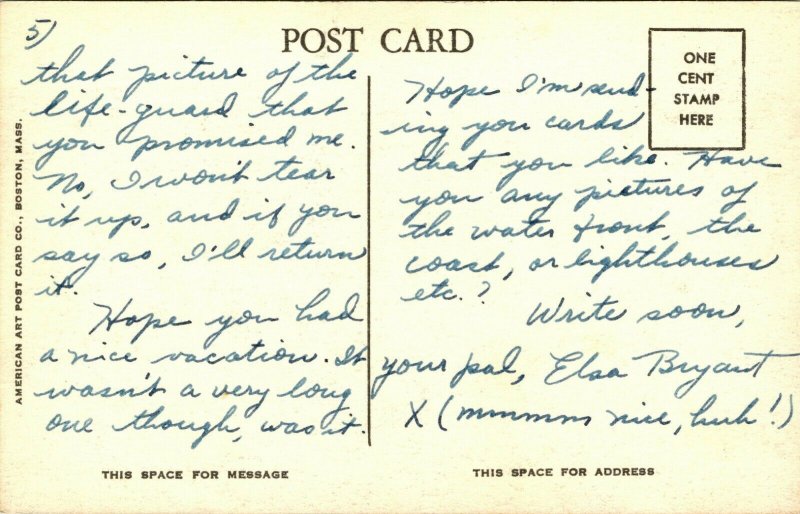 5)
POST CARD
ONE
CENT
STAMP
HERE
that picture of the
life-guard that
you promised me.
No, I won't tear
it up, and if you
say so, I'll return
it.
Hope you had
a nice vacation. It
wasn't a very long
one though, was it.
Hope I'm send-
ing you cards
that you like. Have
you any pictures of
the water front, the
coast, or lighthouses
etc.?
Write soon,
your pal, Elsa Bryant
X (mmmmm nice, huh!)
AMERICAN ART POST CARD CO., BOSTON, MASS.
THIS SPACE FOR MESSAGE
THIS SPACE FOR ADDRESS